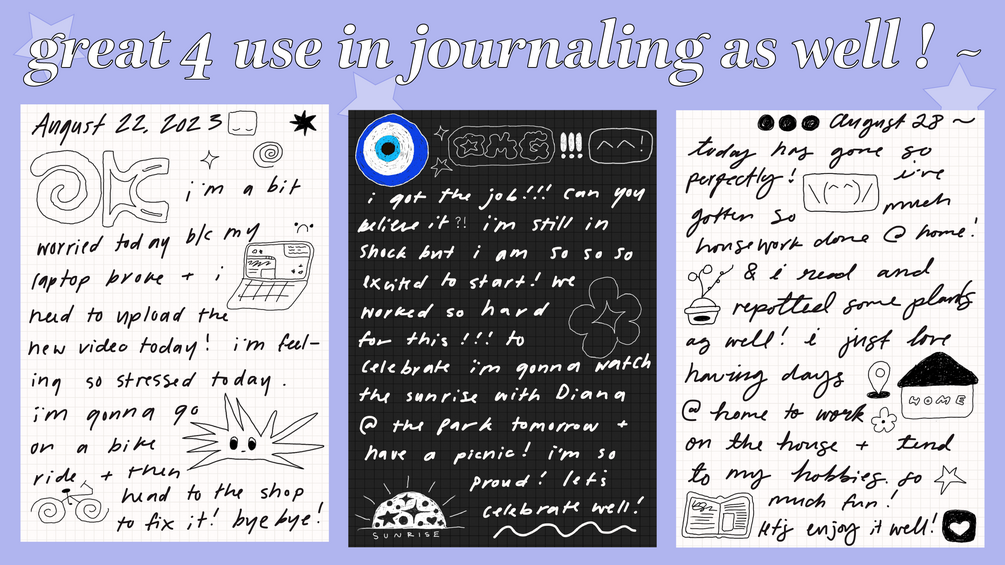 great 4 use in journaling as well ! ~
August 22, 2023
i'm a bit
worried today b/c my
laptop broke + i
need to upload the
new video today! i'm feel-
ing so stressed today.
i'm gonna go
on a bike
ride + then
head to the shop
to fix it! bye bye!
OMG !!! ^^!
i got the job!!! can you
believe it ?! i'm still in
shock but i am so so so
excited to start! we
worked so hard
for this !!! to
celebrate i'm gonna watch
the sunrise with Diana
@ the park tomorrow +
have a picnic! i'm so
proud! let's
celebrate well!
SUNRISE
August 28 ~
today has gone so
perfectly! \(^^)/ i've
gotten so much
housework done @ home!
& i read and
repotted some plants
as well! i just love
having days
HOME
@ home to work
on the house + tend
to my hobbies. so
much fun!
let's enjoy it well!